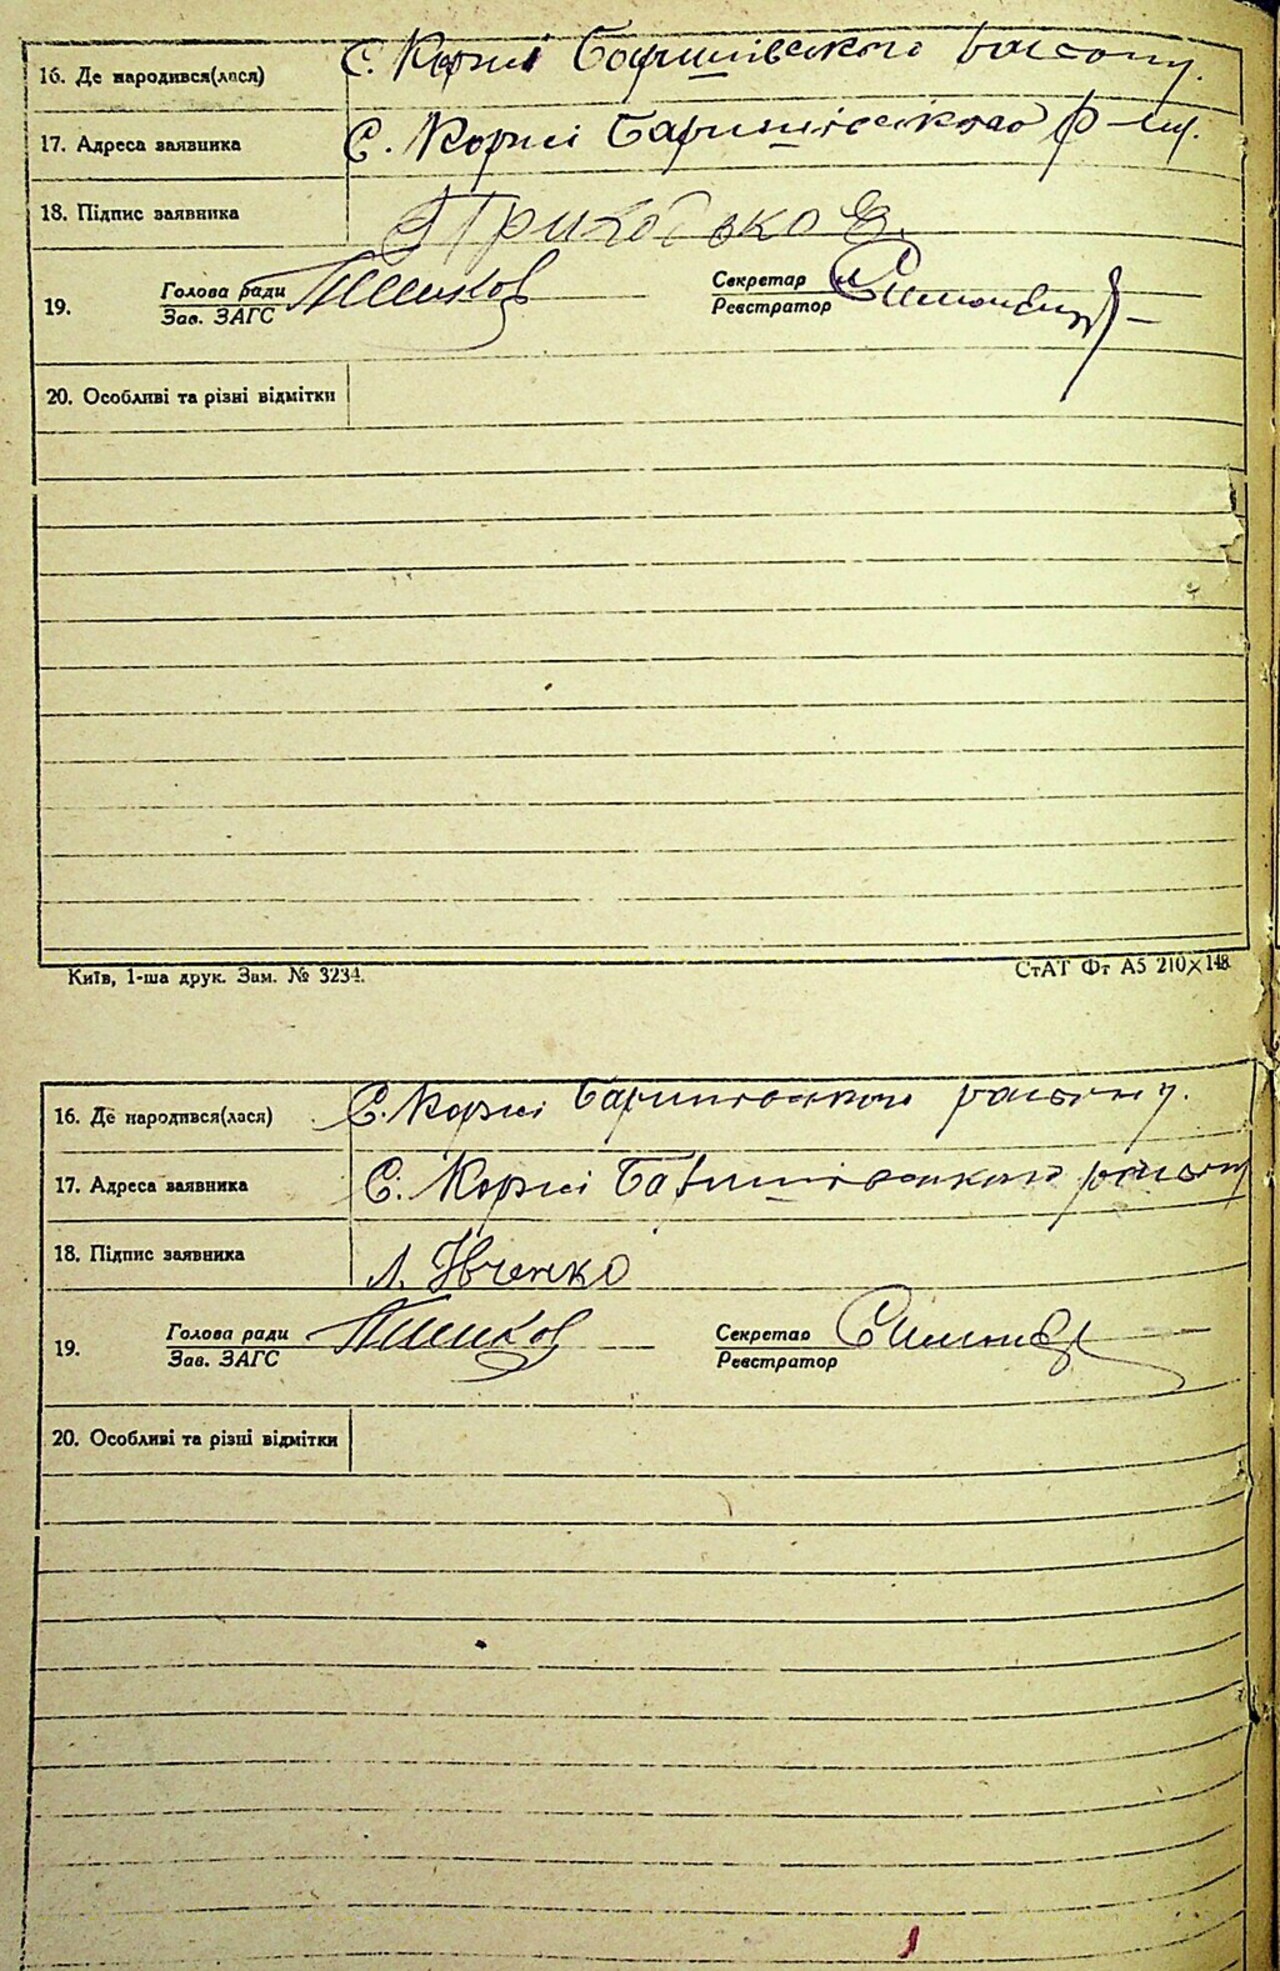 16. Де народився(лася) С. Коржі Баришівського району.
17. Адреса заявника С. Коржі Баришівського р-ну.
18. Підпис заявника Приходько Є.
Голова ради Секретар
19. Зав. ЗАГС Реєстратор
20. Особливі та різні відмітки
Київ, 1-ша друк. Зам. № 3234. СтАТ Фт А5 210×148
16. Де народився(лася) С. Коржі Баришівського району.
17. Адреса заявника С. Коржі Баришівського району
18. Підпис заявника Л. Івченко
Голова ради Секретар
19. Зав. ЗАГС Реєстратор
20. Особливі та різні відмітки